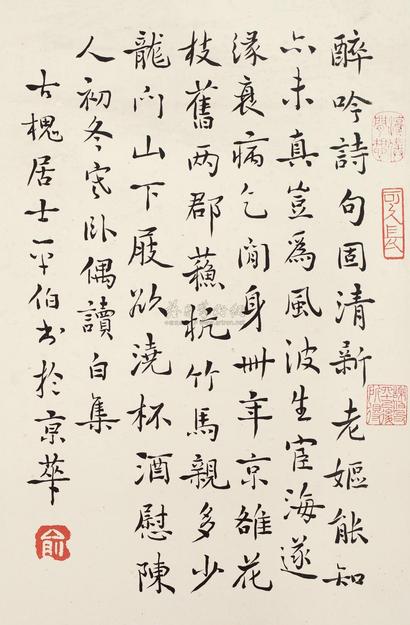 醉吟詩句固清新老嫗能知
亦未真豈為風波生宦海遂
緣衰病乞閒身卅年京雒花
枝舊兩郡蘓杭竹馬親多少
龍门山下屐欲澆杯酒慰陳
人初冬寒卧偶讀白集
古槐居士平伯书於京華
俞